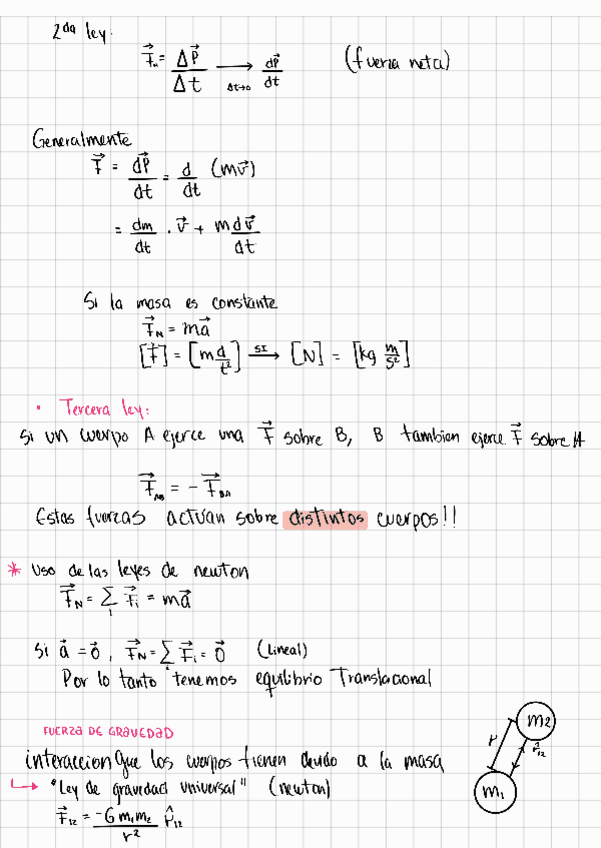 2da ley:
F⃗ₙ = ΔP⃗/Δt ⟶ Δt→0 dP⃗/dt (fuerza neta)
Generalmente
F⃗ = dP⃗/dt = d/dt (mv⃗)
= dm/dt · v⃗ + m dv⃗/dt
Si la masa es constante
F⃗_N = ma⃗
[F⃗] = [m d/t²] ⟶ SI [N] = [kg m/s²]
• Tercera ley:
Si un cuerpo A ejerce una F⃗ sobre B, B tambien ejerce F⃗ sobre A
F⃗_AB = - F⃗_BA
Estas fuerzas actúan sobre distintos cuerpos!!
* Uso de las leyes de newton
F⃗_N = Σ_i F⃗_i = ma⃗
Si a⃗ = 0⃗, F⃗_N = Σ_i F⃗_i = 0⃗ (Lineal)
Por lo tanto tenemos equilibrio Translacional
FUERZA DE GRAVEDAD
interaccion que los cuerpos tienen devido a la masa
↳ "Ley de gravedad universal" (newton)
F⃗₁₂ = -G m₁m₂/r² r̂₁₂
m₂
r
r̂₁₂
m₁